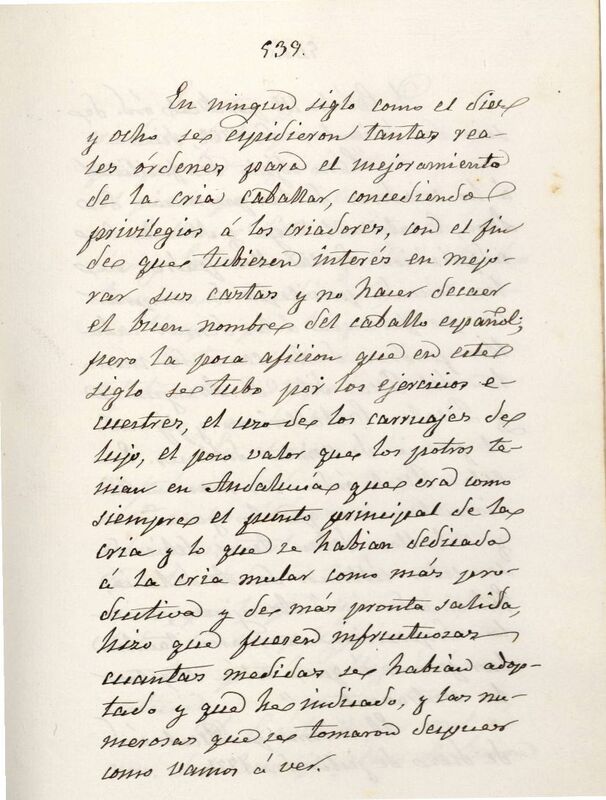 539.
En ningun siglo como el diez
y ocho se expidieron tantas rea-
les órdenes para el mejoramiento
de la cria caballar, concediendo
privilegios á los criadores, con el fin
de que tubiesen interés en mejo-
rar sus castas y no hacer decaer
el buen nombre del caballo español;
pero la poca aficion que en este
siglo se tubo por los ejercicios e-
cuestres, el uso de los carruajes de
lujo, el poco valor que los potros te-
nian en Andalucía que era como
siempre el punto principal de la
cria y lo que se habian dedicado
á la cria mular como más pro-
ductiva y de más pronta salida,
hizo que fuesen infructuosas
cuantas medidas se habian adop-
tado y que he indicado, y las nu-
merosas que se tomaron despues
como vamos á ver.